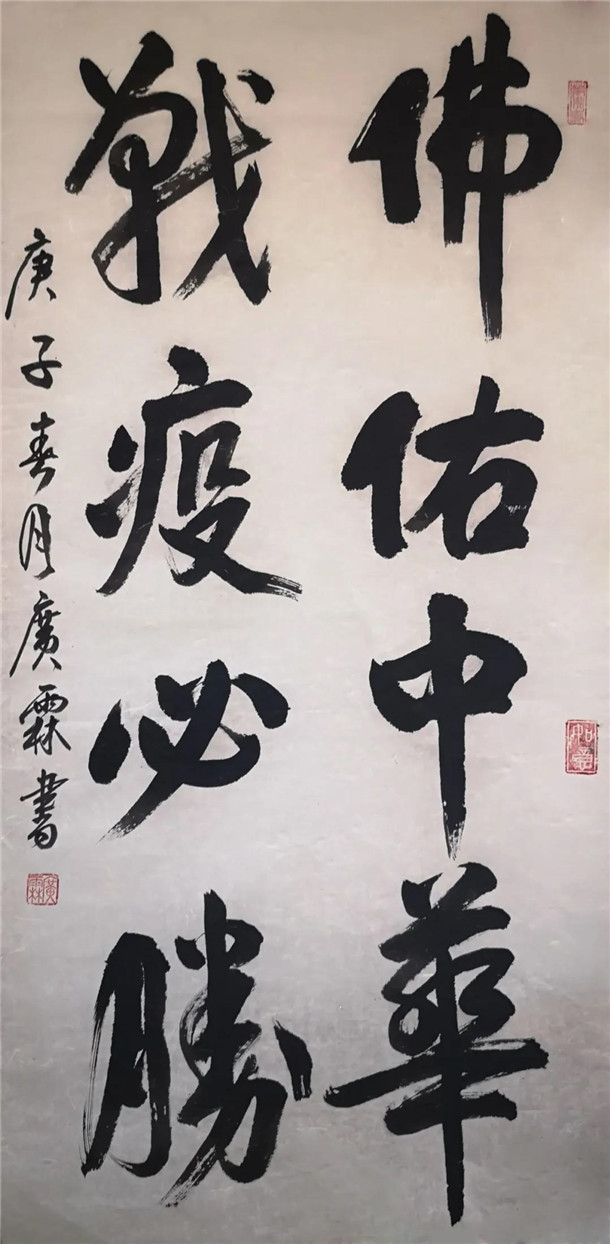 佛佑中華
戰疫必勝
庚子春月廣霖書
廣霖